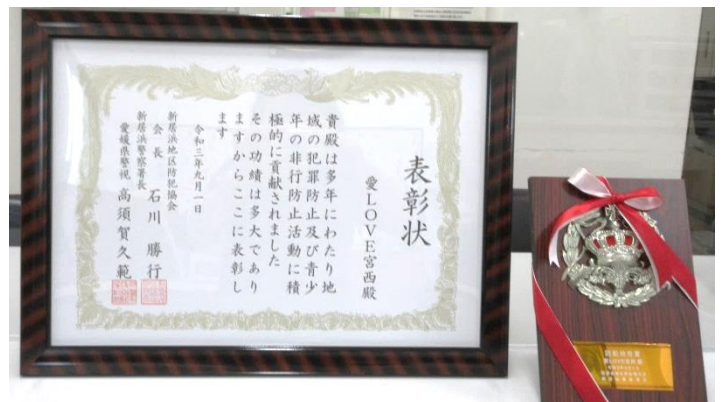 表彰状
愛LOVE宮西殿
貴殿は多年にわたり地
域の犯罪防止及び青少
年の非行防止活動に積
極的に貢献されました
その功績は多大であり
ますからここに表彰し
ます
令和三年九月一日
新居浜地区防犯協会
会長 石川勝行
新居浜警察署長
愛媛県警視 高須賀久範